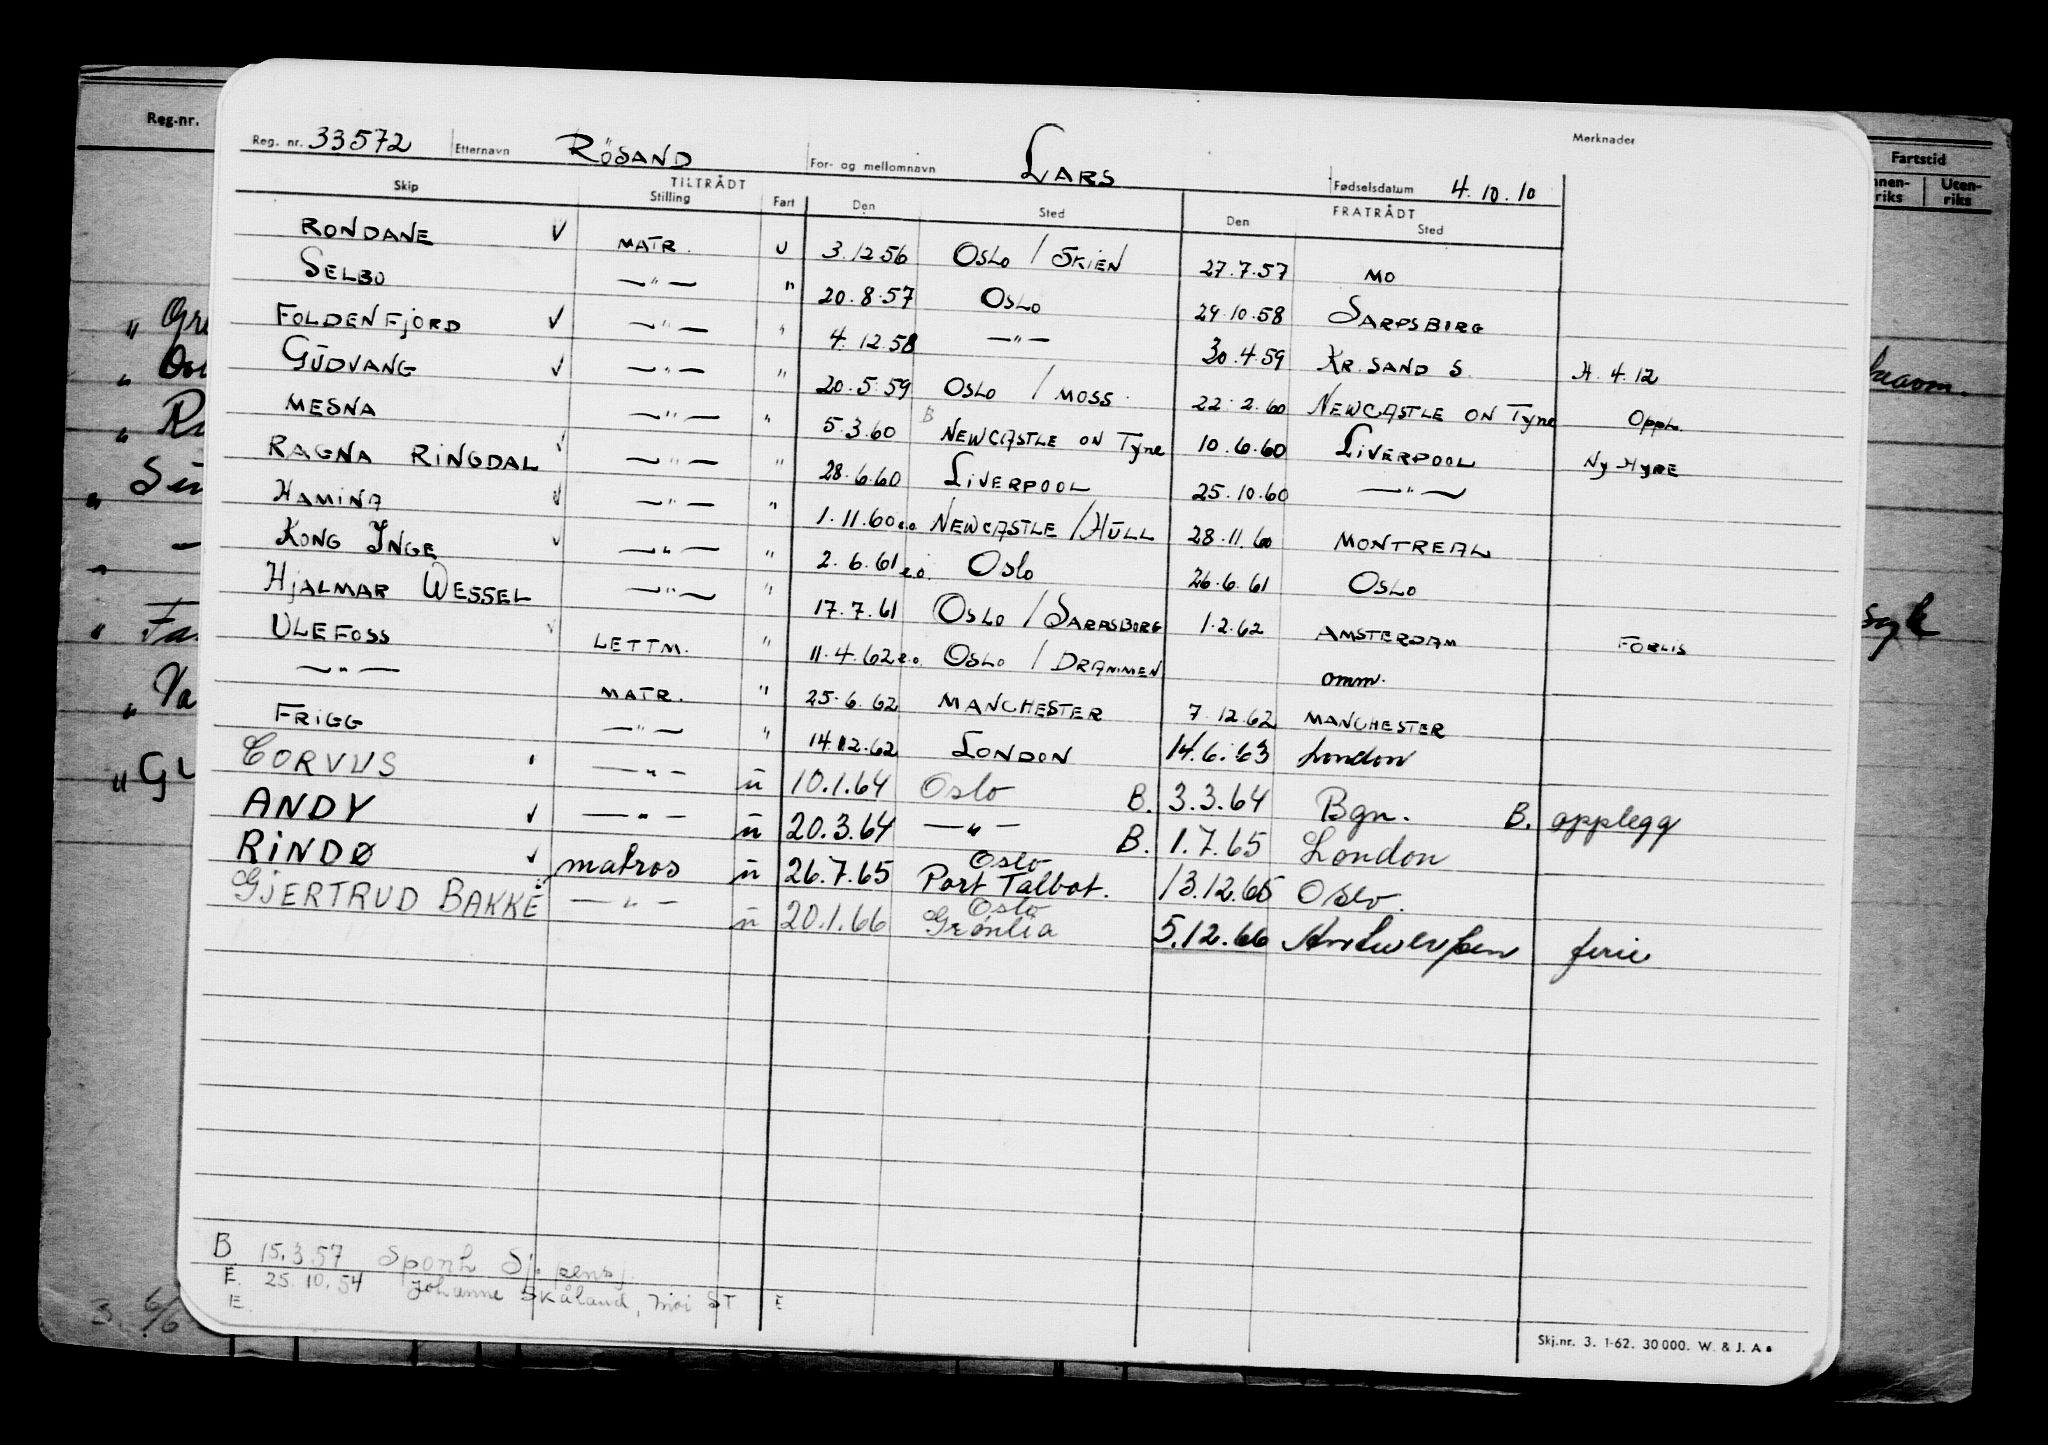 Reg.-nr.
Fartstid
Uten-
riks
Reg. nr. 33572 Etternavn RÖSAND For- og mellomnavn LARS Fødselsdatum 4.10.10 Merknader
TILTRÅDT FRATRÅDT
Skip Stilling Fart Den Sted Den Sted
RONDANE V MATR. U 3.12.56 OSLO / SKIEN 27.7.57 MO
SELBO —"— " 20.8.57 OSLO 29.10.58 SARPSBIRG
FOLDENFJORD V —"— " 4.12.58 —"— 30.4.59 KR.SAND S. H. 4.12
GUDVANG V —"— " 20.5.59 OSLO / MOSS 22.2.60 NEWCASTLE ON TYNE Oppl.
MESNA —"— " 5.3.60 B NEWCASTLE ON TYNE 10.6.60 LIVERPOOL NY HYRE
RAGNA RINGDAL V —"— " 28.6.60 LIVERPOOL 25.10.60 —"—
HAMINA V —"— " 1.11.60 e.o. NEWCASTLE / HULL 28.11.60 MONTREAL
KONG INGE V —"— " 2.6.61 e.o. OSLO 26.6.61 OSLO
HJALMAR WESSEL —"— " 17.7.61 OSLO / SARPSBORG 1.2.62 AMSTERDAM FORLIS
ULEFOSS V LETTM. " 11.4.62 e.o. OSLO / DRAMMEN omm.
—"— MATR. " 25.6.62 MANCHESTER 7.12.62 MANCHESTER
FRIGG —"— " 14.12.62 LONDON 14.6.63 London
CORVUS —"— u 10.1.64 Oslo B. 3.3.64 Bgn. B. opplegg
ANDY V —"— u 20.3.64 —"— B. 1.7.65 London
RINDØ V matros u 26.7.65 Oslo Port Talbot. 13.12.65 Oslo.
GJERTRUD BAKKE —"— u 20.1.66 Oslo Grønlia 5.12.66 Antwerpen ferie
B 15.3.57 Sponh Sj. pensj.
E. 25.10.54 Johanne Skåland, Moi ST E
E.
3. 6/6
Skj.nr. 3. 1-62. 30 000. W. & J. A.